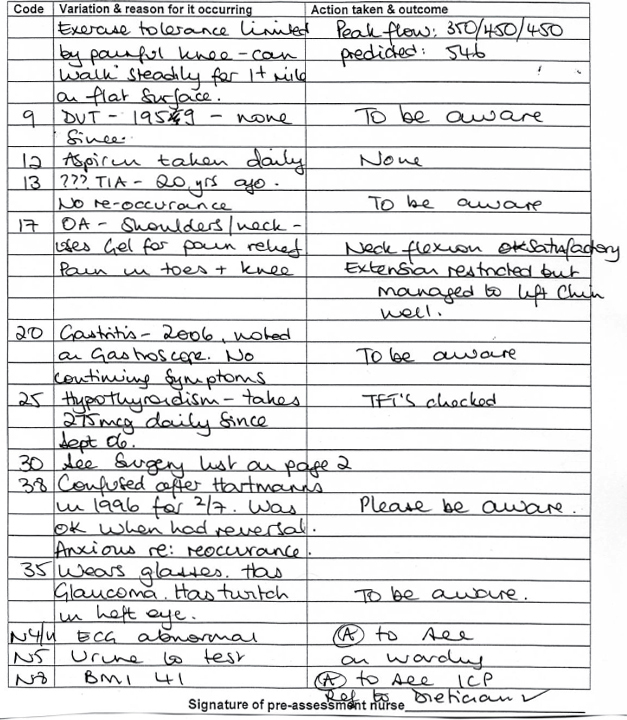 Code Variation & reason for it occurring Action taken & outcome
Exercise tolerance limited Peak flow: 350/450/450
by painful knee - can predicted: 546
walk steadily for 1+ mile
on flat surface.
9 DVT - 1959 - none To be aware
since.
12 Aspirin taken daily None
13 ??? TIA - 20 yrs ago.
No re-occurance To be aware
17 OA - Shoulders/neck -
uses Gel for pain relief Neck flexion satisfactory
Pain in toes + knee Extension restricted but
managed to lift chin
well.
20 Gastritis - 2006, noted
on Gastroscope. No To be aware
continuing symptoms
25 Hypothyroidism - takes TFT's checked
275mcg daily since
Sept 06.
30 See Surgery list on page 2
38 Confused after Hartmanns
in 1996 for 2/7. Was Please be aware.
OK when had reversal.
Anxious re: reoccurance.
35 Wears glasses. Has
Glaucoma. Has twitch To be aware.
in left eye.
N4/11 ECG abnormal (A) to see
N5 Urine to test on
N8 BMI 41 (A) to see ICP
Ref to Dietician ✓
Signature of pre-assessment nurse